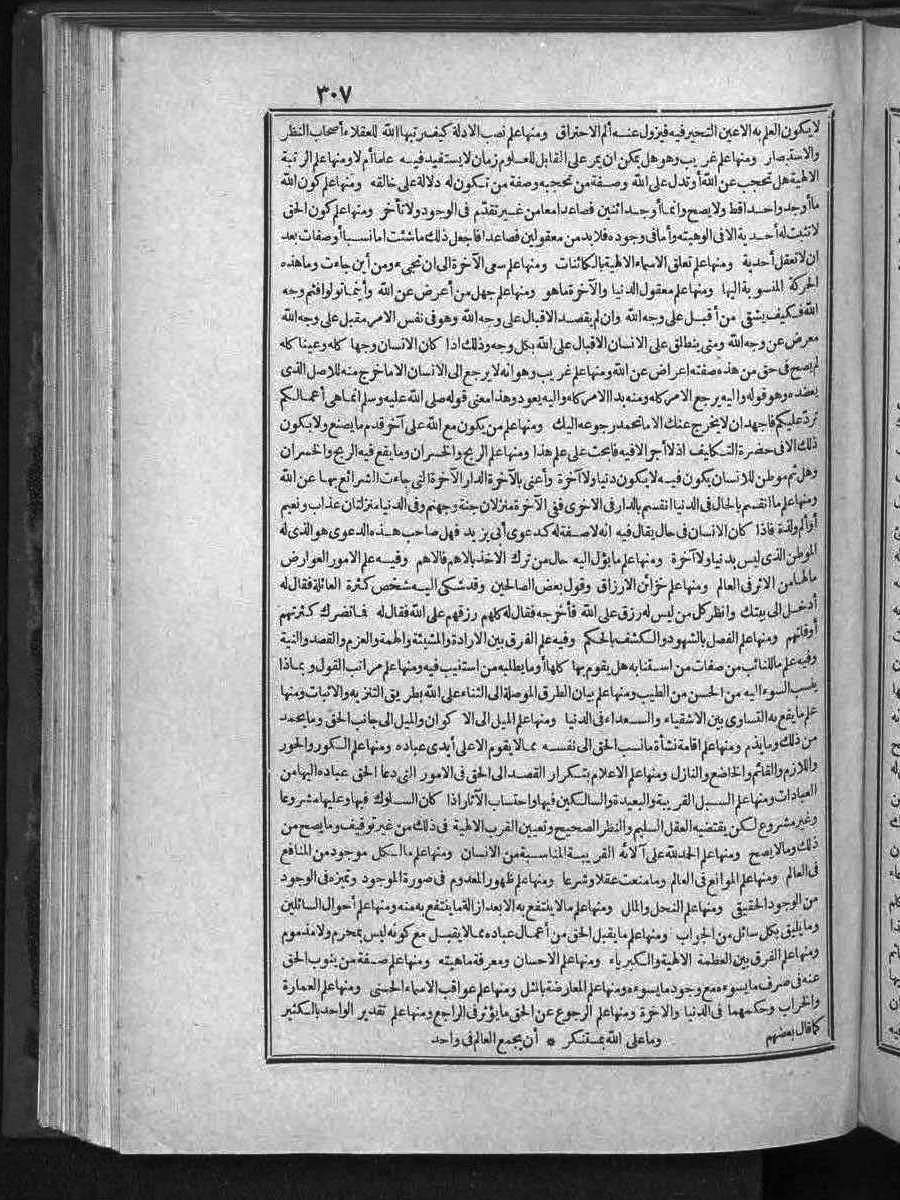 ٣٠٧
لا يكون العلم به الاعين التحير فيه فيزول عنه ألم الاحتراق ومنها علم نصب الادلة كيف رتبها الله للعقلاء أصحاب النظر
والاستبصار ومنها علم غريب وهو هل يمكن ان يمر على القابل للعلوم زمان لا يستفيد فيه علما أم لا ومنها علم الرتبة
الالهية هل تحجب عن الله أو تدل على الله وصفة من تحجبه وصفة من تكون له دلالة على خالقه ومنها علم كون الله
ما أوجد واحدا قط ولا يصح وانما أوجد اثنين فصاعدا معا من غير تقدّم فى الوجود ولا تأخر ومنها علم كون الحق
لا تثبت له أحدية الا فى الوهيته وأما فى وجوده فلا بد من معقولين فصاعدا فاجعل ذلك ما شئت اما نسبا أو صفات بعد
ان لا تعقل أحدية ومنها علم تعلق الاسماء الالهية بالكائنات ومنها علم سعى الآخرة الى ان تجىء ومن أين جاءت وما هذه
الحركة المنسوبة اليها ومنها علم معقول الدنيا والآخرة ما هو ومنها علم جهل من أعرض عن الله وأينما تولوا فثم وجه
الله فكيف يشقى من أقبل على وجه الله وان لم يقصد الاقبال على وجه الله وهو فى نفس الامر مقبل على وجه الله
معرض عن وجه الله ومتى ينطلق على الانسان الاقبال على الله بكل وجه وذلك اذا كان الانسان وجها كله وعينا كله
لم يصح فى حق من هذه صفته اعراض عن الله ومنها علم غريب وهو انه لا يرجع الى الانسان الا ما خرج منه للاصل الذى
يعضده وهو قوله واليه يرجع الامر كله ومنه بدا الامر كله واليه يعود وهذا معنى قوله صلى الله عليه وسلم انما هى أعمالكم
تردّ عليكم فاجهد ان لا يخرج عنك الا ما تحمد رجوعه اليك ومنها علم من يكون مع الله على آخر قدم ما يصنع ولا يكون
ذلك الا فى حضرة التكليف اذ لا أجر الا فيه فابحث على علم هذا ومنها علم الربح والخسران وما يقع فيه الربح والخسران
وهل ثم موطن للانسان يكون فيه لا يكون دنيا ولا آخرة وأعنى بالآخرة الدار الآخرة التى جاءت الشرائع بها عن الله
ومنها علم ما انقسم بالحال فى الدنيا انقسم بالدار فى الاخرى ففى الآخرة منزلان جنة وجهنم وفى الدنيا منزلتان عذاب ونعيم
أو ألم ولذة فاذا كان الانسان فى حال يقال فيه انه لا صفة له كدعوى أبى يزيد فهل صاحب هذه الدعوى هو الذى له
الموطن الذى ليس بدنيا ولا آخرة ومنها علم ما يؤل اليه حال من ترك الاخذ بالاهم فالاهم وفيه علم الامور العوارض
ما لها من الاثر فى العالم ومنها علم خزائن الارزاق وقول بعض الصالحين وقد شكى اليه شخص كثرة العائلة فقال له
أدخل الى بيتك وانظر كل من ليس له رزق على الله فأخرجه فقال له كلهم رزقهم على الله فقال له فما تضرك كثرتهم
أو قلتهم ومنها علم الفصل بالشهود والكشف بالحكم وفيه علم الفرق بين الارادة والمشيئة والهمة والعزم والقصد والنية
وفيه علم ما للنائب من صفات من استنابه هل يقوم بها كلها أو ما يطلبه من استنيب فيه ومنها علم مراتب القول وبماذا
ينسب السوء اليه من الحسن من الطيب ومنها علم بيان الطرق الموصلة الى الثناء على الله بطريق التنزيه والاثبات ومنها
علم ما يقع به التساوى بين الاشقياء والسعداء فى الدنيا ومنها علم الميل الى الاكوان والميل الى جانب الحق وما يحمد
من ذلك وما يذم ومنها علم اقامة نشأة ما نسب الحق الى نفسه مما لا يقوم الا على أيدى عباده ومنها علم الكور والحور
واللازم والقائم والخاضع والنازل ومنها علم الاعلام بتكرار القصد الى الحق فى الامور التى دعا الحق عباده اليها من
العبادات ومنها علم السبل القريبة والبعيدة والسالكين فيها واحتساب الآثار اذا كان السلوك فيها وعليها مشروعا
وغير مشروع لكن يقتضيه العقل السليم والنظر الصحيح وتعيين القرب الالهية فى ذلك من غير توقيف وما يصح من
ذلك وما لا يصح ومنها علم الحمد لله على آلائه القريبة المناسبة من الانسان ومنها علم ما لكل موجود من المنافع
فى العالم ومنها علم الموانع فى العالم وما منعت عقلا وشرعا ومنها علم ظهور المعدوم فى صورة الموجود وتميزه فى الوجود
من الوجود الحقيقى ومنها علم النحل والملل ومنها علم ما لا ينتفع به الا بعد ازالة ما ينتفع به منه ومنها علم أحوال السائلين
وما يليق بكل سائل من الجواب ومنها علم ما يقبل الحق من أعمال عباده مما لا يقبل مع كونه ليس بمحرم ولا مذموم
ومنها علم الفرق بين العظمة الالهية والكبرياء ومنها علم الاحسان ومعرفة ماهيته ومنها علم صفة من ينوب الحق
عنه فى صرف ما يسوءه مع وجود ما يسوءه ومنها علم المعارضة بالمثل ومنها علم عواقب الاسماء الحسنى ومنها علم العمارة
والخراب وحكمهما فى الدنيا والاخرة ومنها علم الرجوع عن الحق ما يؤثر فى الراجع ومنها علم تقدير الواحد بالكثير
كما قال بعضهم وما على الله بمستنكر * أن يجمع العالم فى واحد